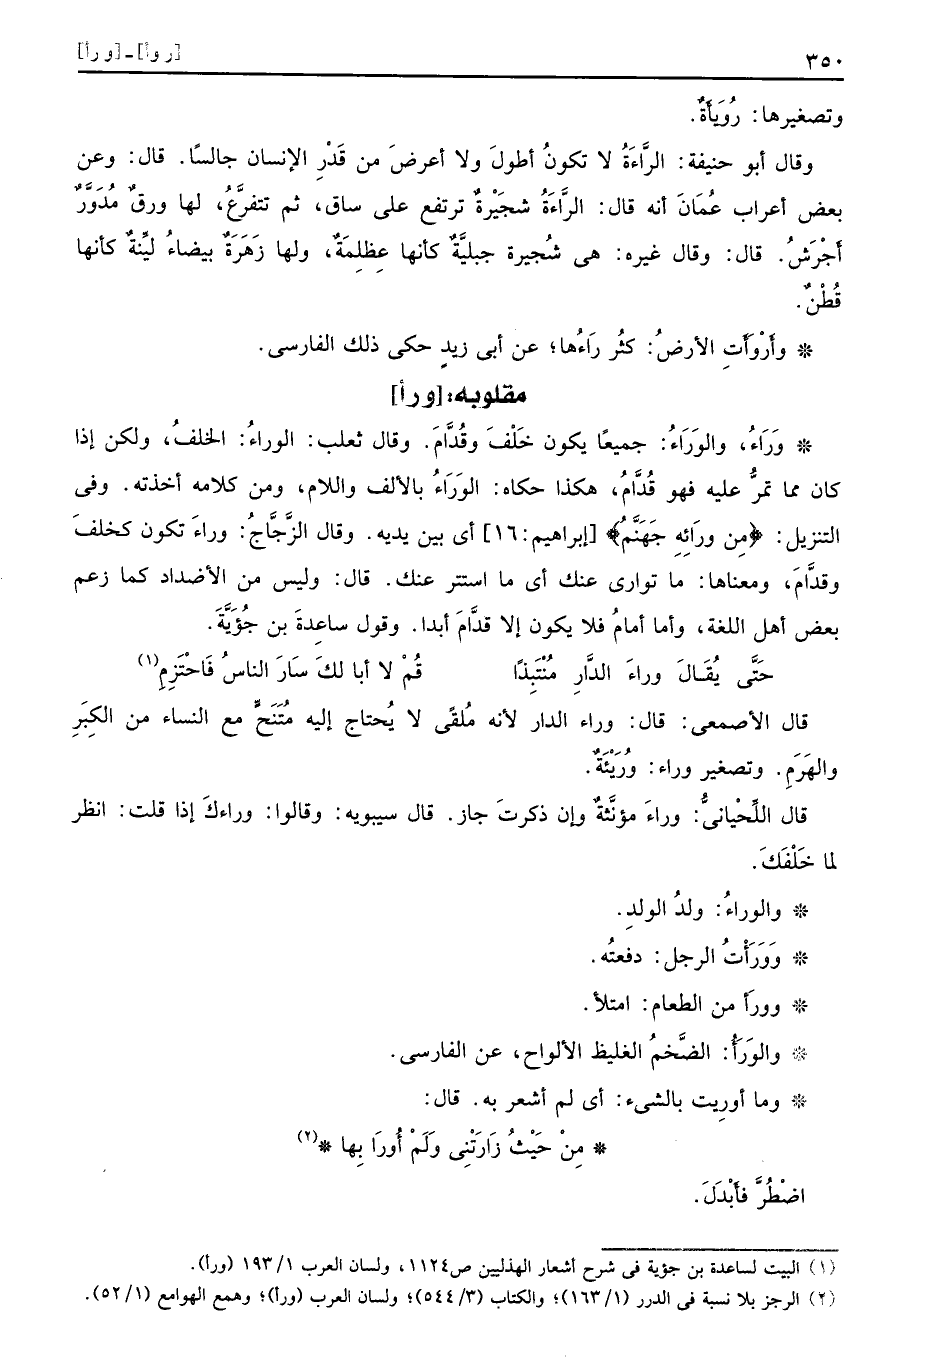 ٣٥٠ [ر و أ] ـ [و ر أ]
وتصغيرها: رُوَيأَةٌ.
وقال أبو حنيفة: الرَّاءَةُ لا تكونُ أطولَ ولا أعرضَ من قَدْرِ الإنسان جالسًا. قال: وعن
بعض أعراب عُمَانَ أنه قال: الرَّاءَةُ شجَيْرةٌ ترتفع على ساق، ثم تتفرَّعُ، لها ورقٌ مُدَوَّرٌ
أَجْرَشُ. قال: وقال غيره: هى شُجيرة جبليَّةٌ كأنها عِظلِمَةٌ، ولها زَهَرَةٌ بيضاءُ ليِّنةٌ كأنها
قُطْنٌ.
* وأَرْوَأَتِ الأرضُ: كثُر رَاءُها؛ عن أبى زيدٍ حكى ذلك الفارسى.
مقلوبه: [و ر أ]
* وَرَاءُ، والوَرَاءُ: جميعًا يكون خَلْفَ وقُدَّامَ. وقال ثعلب: الوراءُ: الخلفُ، ولكن إذا
كان مما تمرُّ عليه فهو قُدَّامُ، هكذا حكاه: الوَرَاءُ بالألف واللام، ومن كلامه أخذته. وفى
التنزيل: ﴿مِن ورَائِهِ جَهَنَّمُ﴾ [إبراهيم: ١٦] أى بين يديه. وقال الزَّجَّاجُ: وراءَ تكون كخلفَ
وقدَّامَ، ومعناها: ما توارى عنك أى ما استتر عنك. قال: وليس من الأضداد كما زعم
بعض أهل اللغة، وأما أمامُ فلا يكون إلا قدَّامَ أبدا. وقول ساعِدةَ بن جُؤَيَّةَ.
حَتَّى يُقَالَ وراءَ الدَّارِ مُنْتَبِذًا قُمْ لا أبا لكَ سَارَ الناسُ فَاحْتَزِمِ(١)
قال الأصمعى: قال: وراء الدار لأنه مُلقًى لا يُحتاج إليه مُتَنَحٍّ مع النساء من الكِبَرِ
والهَرَمِ. وتصغير وراء: وُرَيْئَةٌ.
قال اللِّحْيانىُّ: وراءَ مؤنَّثةٌ وإن ذكرتَ جاز. قال سيبويه: وقالوا: وراءكَ إذا قلت: انظر
لما خَلْفَكَ.
* والوراءُ: ولدُ الولدِ.
* وَوَرَأْتُ الرجل: دفعتُه.
* وورأَ من الطعام: امتلأ.
* والوَرَأُ: الضَّخمُ الغليظ الألواح، عن الفارسى.
* وما أورِيت بالشىء: أى لم أشعر به. قال:
* مِنْ حَيْثُ زَارَتْنِى وَلَمْ أُورَا بِها *(٢)
اضْطُرَّ فأَبْدَلَ.
(١) البيت لساعدة بن جؤية فى شرح أشعار الهذليين ص١١٢٤، ولسان العرب ١/ ١٩٣ (ورأ).
(٢) الرجز بلا نسبة فى الدرر (١/ ١٦٣)؛ والكتاب (٣/ ٥٤٤)؛ ولسان العرب (ورأ)؛ وهمع الهوامع (١/ ٥٢).